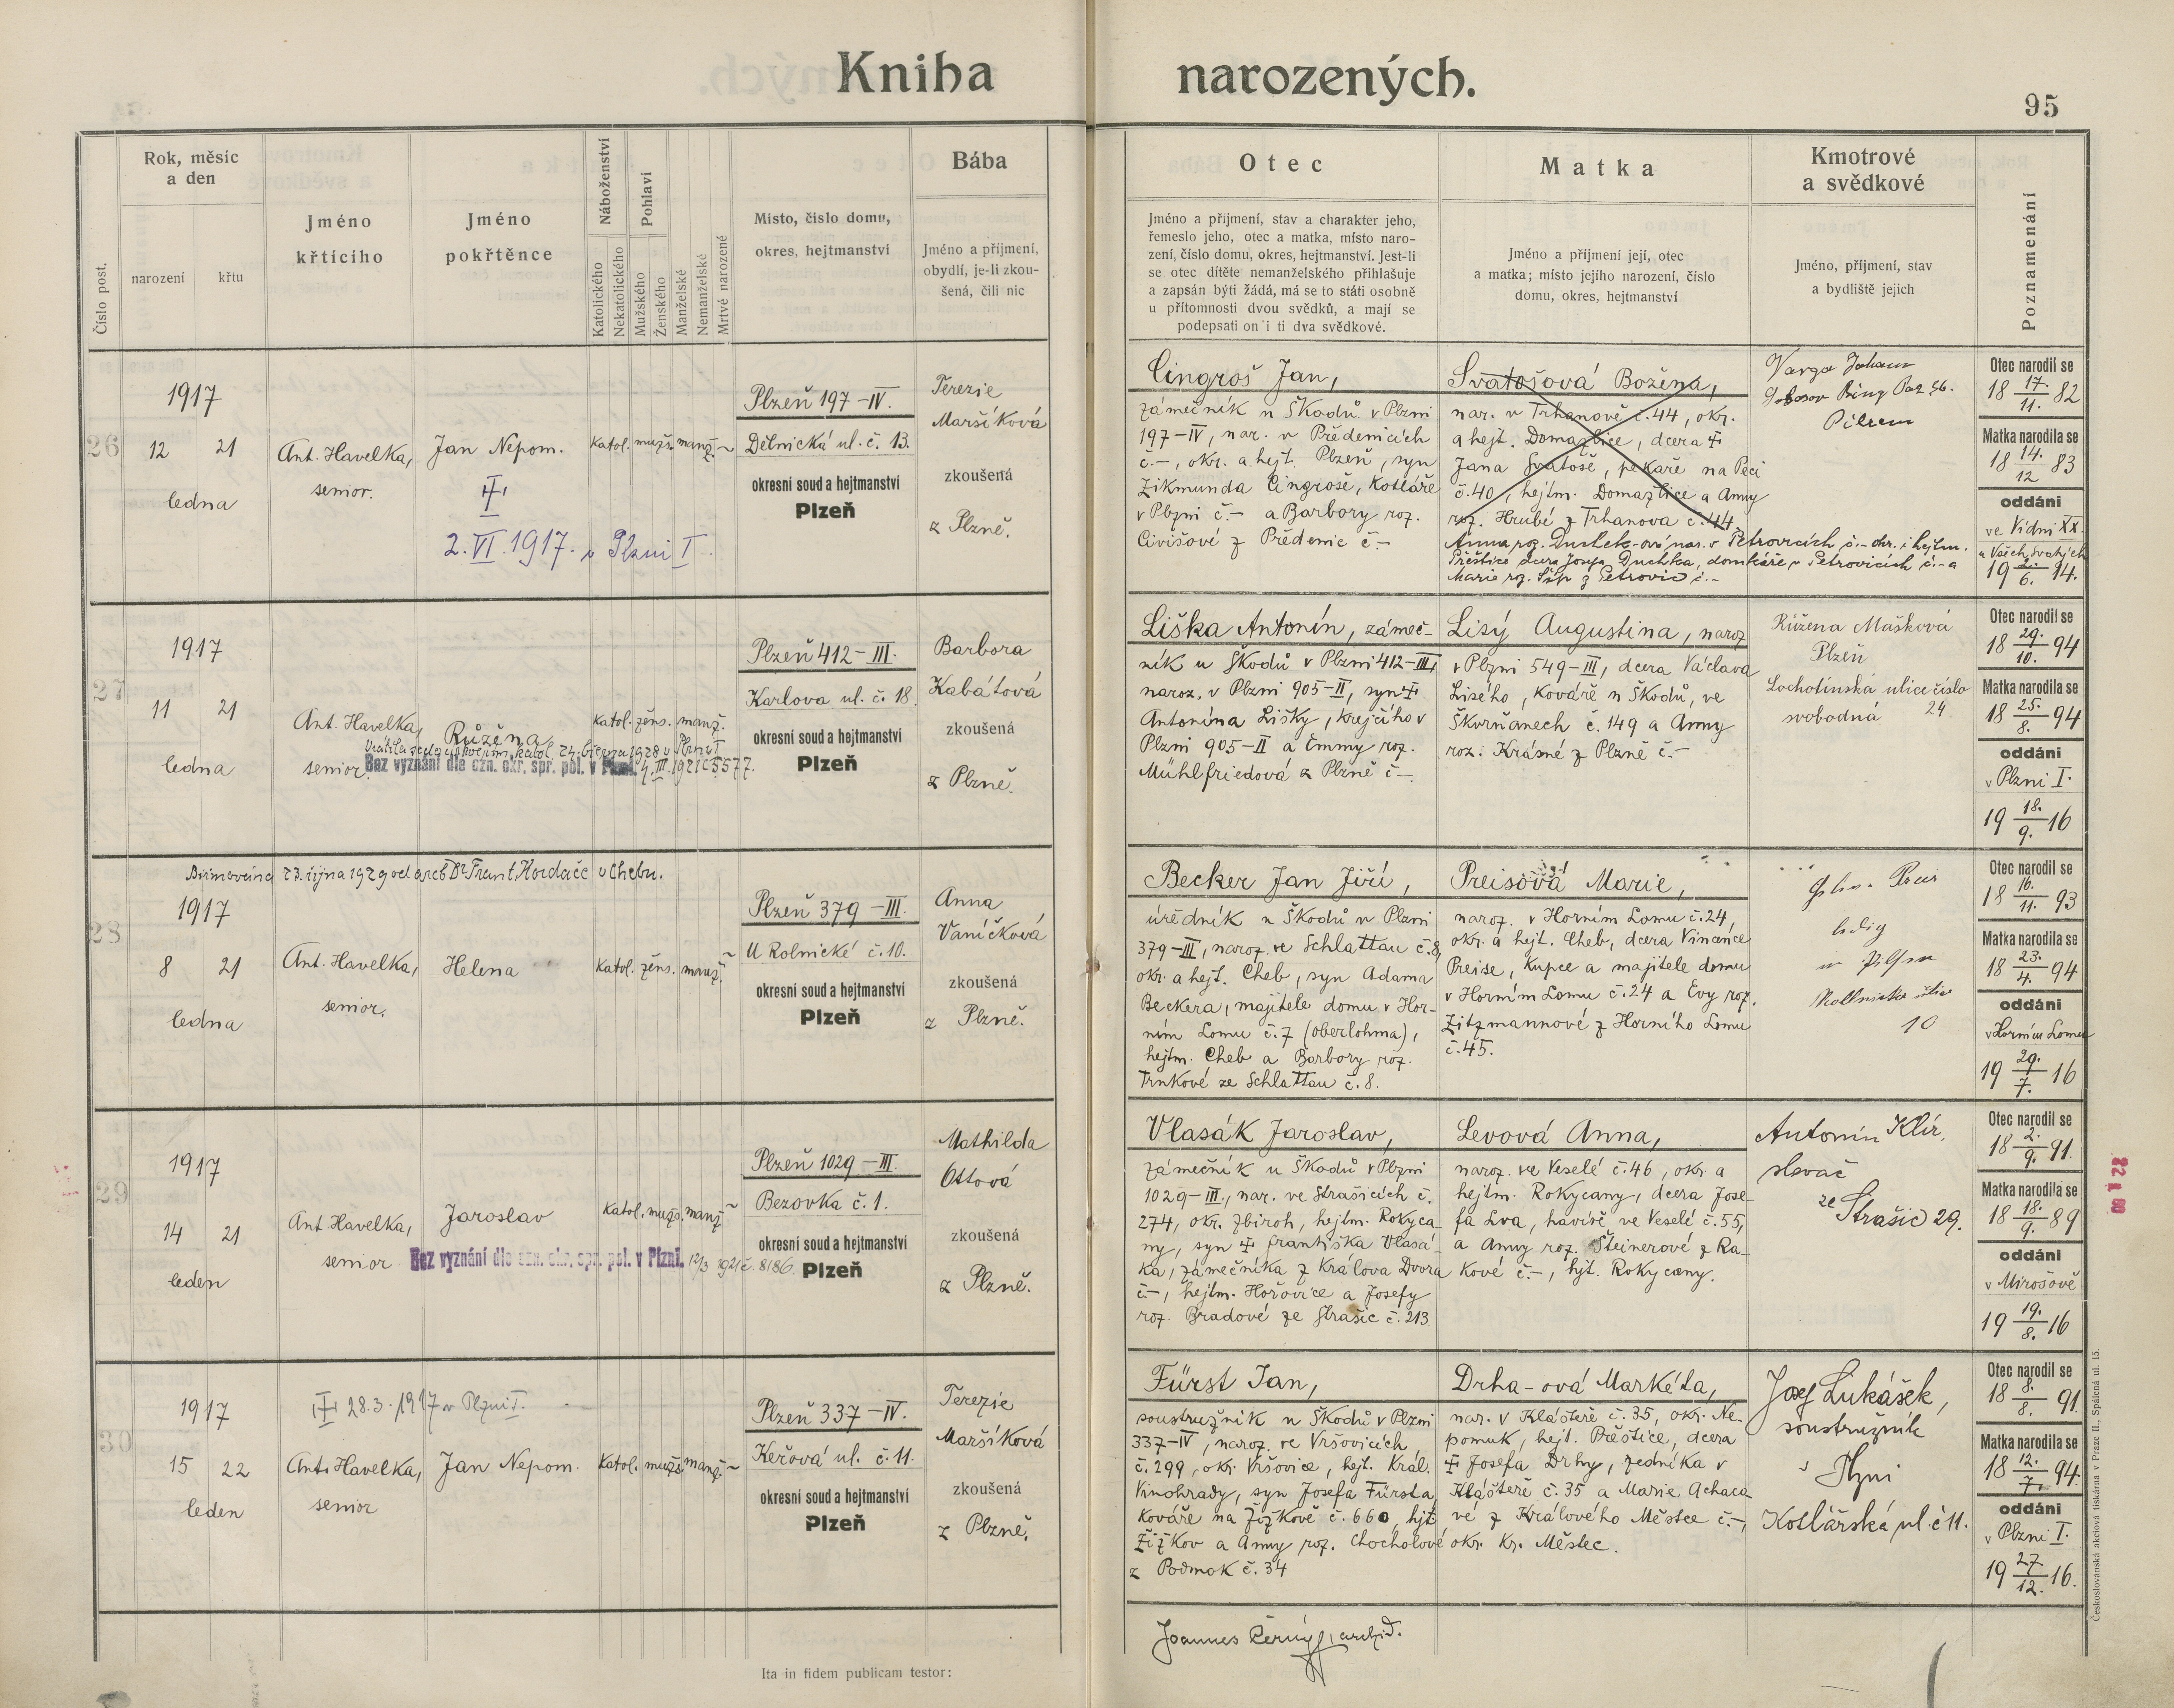 Kniha narozených.
95
Číslo post.
Rok, měsíc
a den
narození
křtu
Jméno
křtícího
Jméno
pokřtěnce
Náboženství
Katolického
Nekatolického
Pohlaví
Mužského
Ženského
Manželské
Nemanželské
Mrtvě narozené
Místo, číslo domu,
okres, hejtmanství
Bába
Jméno a příjmení,
obydlí, je-li zkou-
šená, čili nic
Otec
Jméno a příjmení, stav a charakter jeho,
řemeslo jeho, otec a matka, místo naro-
zení, číslo domu, okres, hejtmanství. Jest-li
se otec dítěte nemanželského přihlašuje
a zapsán býti žádá, má se to státi osobně
u přítomnosti dvou svědků, a mají se
podepsati on i ti dva svědkové.
Matka
Jméno a příjmení její, otec
a matka; místo jejího narození, číslo
domu, okres, hejtmanství
Kmotrové
a svědkové
Jméno, příjmení, stav
a bydliště jejich
Poznamenání
26
1917
12 21
ledna
Ant. Havelka,
senior.
Jan Nepom.
2. VI. 1917. v Plzni I.
katol. mužs. manž. ~
Plzeň 197-IV.
Dělnická ul. č. 13.
okresní soud a hejtmanství
Plzeň
Terezie
Maršíková
zkoušená
z Plzně.
Cingroš Jan,
zámečník u Škodů v Plzni
197-IV, nar. v Předenicích
č.-, okr. a hejt. Plzeň, syn
Zikmunda Cingroše, kotláře
v Plzni č.- a Barbory roz.
Civišové z Předenic č.-
Svatošová Božena,
nar. v Trhanově č. 44, okr.
a hejt. Domažlice, dcera ‡
Jana Svatoše, pekaře na Peci
č. 40, hejtm. Domažlice a Anny
roz. Hrubé z Trhanova č. 44.
Anna roz. Duchek-ová nar. v Petrovicích č.- okr. i hejtm.
Přeštice dcera Josefa Duchka, domkáře v Petrovicích č.- a
Marie roz. Šíp z Petrovic č.-
Varga Johann
Pilsen
Otec narodil se
18 17./11. 82
Matka narodila se
18 14./12 83
oddáni
ve Vídni XX.
u Všech Svatých
19 2./6. 14.
27
1917
11 21
ledna
Ant. Havelka,
senior.
Růžena
Bez vyznání dle ozn. okr. spr. pol. v Plzni. 4. III. 1921 č 5577.
katol. žens. manž.
Plzeň 412-III.
Karlova ul. č. 18.
okresní soud a hejtmanství
Plzeň
Barbora
Kabátová
zkoušená
z Plzně.
Liška Antonín, zámeč-
ník u Škodů v Plzni 412-III,
naroz. v Plzni 905-II, syn ‡
Antonína Lišky, krejčího v
Plzni 905-II a Emmy roz.
Mühlfriedová z Plzně č-.
Lisý Augustina, naroz
v Plzni 549-III, dcera Václava
Lisého, kováře u Škodů, ve
Škvrňanech č. 149 a Anny
roz. Krásné z Plzně č.-
Růžena Mašková
Plzeň
Lochotínská ulice číslo
svobodná 24.
Otec narodil se
18 29./10. 94
Matka narodila se
18 25./8. 94
oddáni
v Plzni I.
19 18./9. 16
Biřmována 23. října 1929 od arcb Dr Frant. Kordače v Chebu.
28
1917
8 21
ledna
Ant. Havelka,
senior.
Helena
katol. žens. manž. ~
Plzeň 379-III.
U Rolnické č. 10.
okresní soud a hejtmanství
Plzeň
Anna
Vaníčková
zkoušená
z Plzně.
Becker Jan Jiří,
úředník u Škodů v Plzni
379-III, naroz. ve Schlattau č. 8,
okr. a hejt. Cheb, syn Adama
Beckera, majitele domu v Hor-
ním Lomu č. 7 (oberlohma),
hejtm. Cheb a Barbory roz.
Trnkové ze Schlattau č. 8.
Preisová Marie,
naroz. v Horním Lomu č. 24,
okr. a hejt. Cheb, dcera Vincence
Preise, kupce a majitele domu
v Horním Lomu č. 24 a Evy roz.
Zitzmannové z Horního Lomu
č. 45.
ledig
in Pilsen
10
Otec narodil se
18 16./11. 93
Matka narodila se
18 23./4. 94
oddáni
v Horním Lomu
19 29./7. 16
29
1917
14 21
leden
Ant. Havelka,
senior
Jaroslav
Bez vyznání dle ozn. okr. spr. pol. v Plzni. 12/3 1921 č. 8186.
katol. mužs. manž ~
Plzeň 1029-III.
Bezovka č. 1.
okresní soud a hejtmanství
Plzeň
Mathilda
Ottová
zkoušená
z Plzně.
Vlasák Jaroslav,
zámečník u Škodů v Plzni
1029-III., nar. ve Strašicích č.
274, okr. Zbiroh, hejtm. Rokyca-
ny, syn ‡ Františka Vlasá-
ka, zámečníka z Králova Dvora
č.-, hejtm. Hořovice a Josefy
roz. Bradové ze Strašic č. 213.
Levová Anna,
naroz. ve Veselé č. 46, okr. a
hejtm. Rokycany, dcera Jose-
fa Lva, havíře ve Veselé č. 55,
a Anny roz. Šteinerové z Ra-
kové č.-, hjt. Rokycany.
Antonín Klír,
slevač
ze Strašic 29.
Otec narodil se
18 2./9. 91.
Matka narodila se
18 18./9. 89
oddáni
v Mirošově
19 19./8. 16
30
1917
‡ 28.3./1917 v Plzni I.
15 22
leden
Ant. Havelka,
senior
Jan Nepom.
katol. mužs. manž. ~
Plzeň 337-IV.
Keřová ul. č. 11.
okresní soud a hejtmanství
Plzeň
Terezie
Maršíková
zkoušená
z Plzně.
Fürst Jan,
soustružník u Škodů v Plzni
337-IV, naroz. ve Vršovicích
č. 299, okr. Vršovice, hejt. Král.
Vinohrady, syn Josefa Fürsta,
kováře na Žižkově č. 660, hjt
Žižkov a Anny roz. Chocholové
z Podmok č. 34
Drha-ová Markéta,
nar. v Klášteře č. 35, okr. Ne-
pomuk, hejt. Přeštice, dcera
‡ Josefa Drhy, zedníka v
Klášteře č. 35 a Marie Achaco
vé z Králového Městce č.-,
okr. Kr. Městec.
Josef Lukášek,
soustružník
v Plzni
Kotlářská ul. č 11.
Otec narodil se
18 8./8. 91.
Matka narodila se
18 12./7. 94.
oddáni
v Plzni I.
19 27./12. 16.
Joannes Černý, archid.
Ita in fidem publicam testor:
Československá akciová tiskárna v Praze II., Spálená ul. 15.